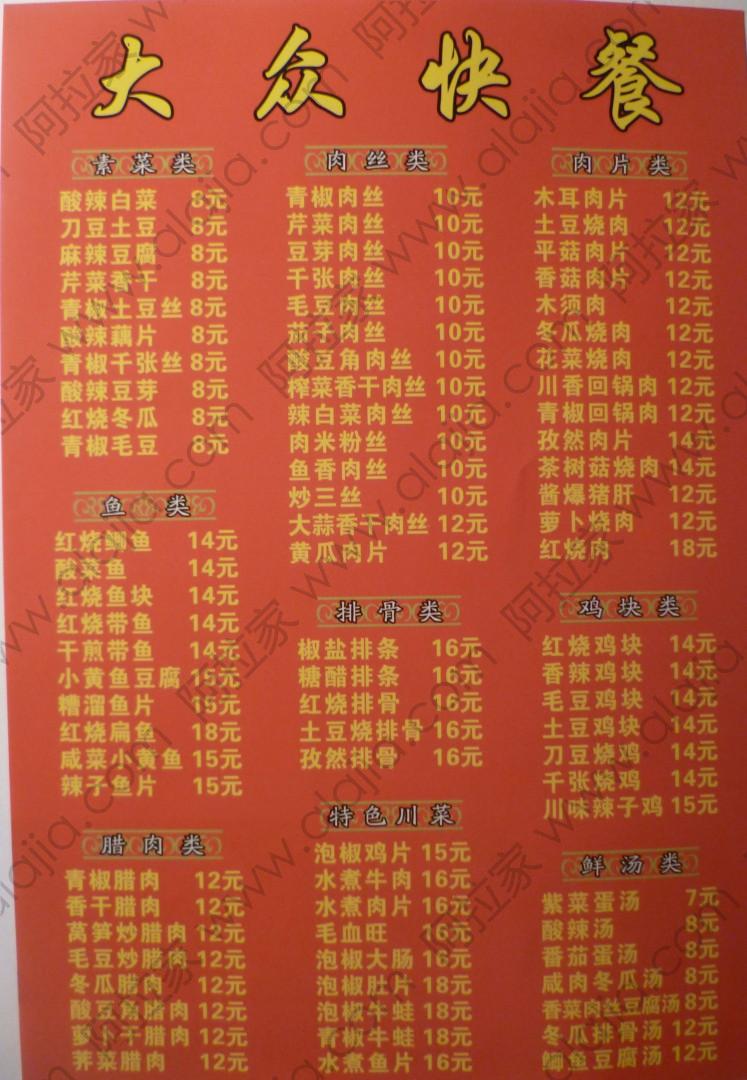 大众快餐
素菜类
酸辣白菜 8元
刀豆土豆 8元
麻辣豆腐 8元
芹菜香干 8元
青椒土豆丝 8元
酸辣藕片 8元
青椒千张丝 8元
酸辣豆芽 8元
红烧冬瓜 8元
青椒毛豆 8元
鱼类
红烧鲫鱼 14元
酸菜鱼 14元
红烧鱼块 14元
红烧带鱼 14元
干煎带鱼 14元
小黄鱼豆腐 15元
糟溜鱼片 15元
红烧扁鱼 18元
咸菜小黄鱼 15元
辣子鱼片 15元
腊肉类
青椒腊肉 12元
香干腊肉 12元
莴笋炒腊肉 12元
毛豆炒腊肉 12元
冬瓜腊肉 12元
酸豆角腊肉 12元
萝卜干腊肉 12元
荠菜腊肉 12元
肉丝类
青椒肉丝 10元
芹菜肉丝 10元
豆芽肉丝 10元
千张肉丝 10元
毛豆肉丝 10元
茄子肉丝 10元
酸豆角肉丝 10元
榨菜香干肉丝 10元
辣白菜肉丝 10元
肉米粉丝 10元
鱼香肉丝 10元
炒三丝 10元
大蒜香干肉丝 12元
黄瓜肉片 12元
排骨类
椒盐排条 16元
糖醋排条 16元
红烧排骨 16元
土豆烧排骨 16元
孜然排骨 16元
特色川菜
泡椒鸡片 15元
水煮牛肉 16元
水煮肉片 16元
毛血旺 16元
泡椒大肠 16元
泡椒肚片 18元
泡椒牛蛙 18元
青椒牛蛙 18元
水煮鱼片 16元
肉片类
木耳肉片 12元
土豆烧肉 12元
平菇肉片 12元
香菇肉片 12元
木须肉 12元
冬瓜烧肉 12元
花菜烧肉 12元
川香回锅肉 12元
青椒回锅肉 12元
孜然肉片 14元
茶树菇烧肉 14元
酱爆猪肝 12元
萝卜烧肉 12元
红烧肉 18元
鸡块类
红烧鸡块 14元
香辣鸡块 14元
毛豆鸡块 14元
土豆鸡块 14元
刀豆烧鸡 14元
千张烧鸡 14元
川味辣子鸡 15元
鲜汤类
紫菜蛋汤 7元
酸辣汤 8元
番茄蛋汤 8元
咸肉冬瓜汤 8元
香菜肉丝豆腐汤 8元
冬瓜排骨汤 12元
鲫鱼豆腐汤 12元
阿拉家 www.alajia.com